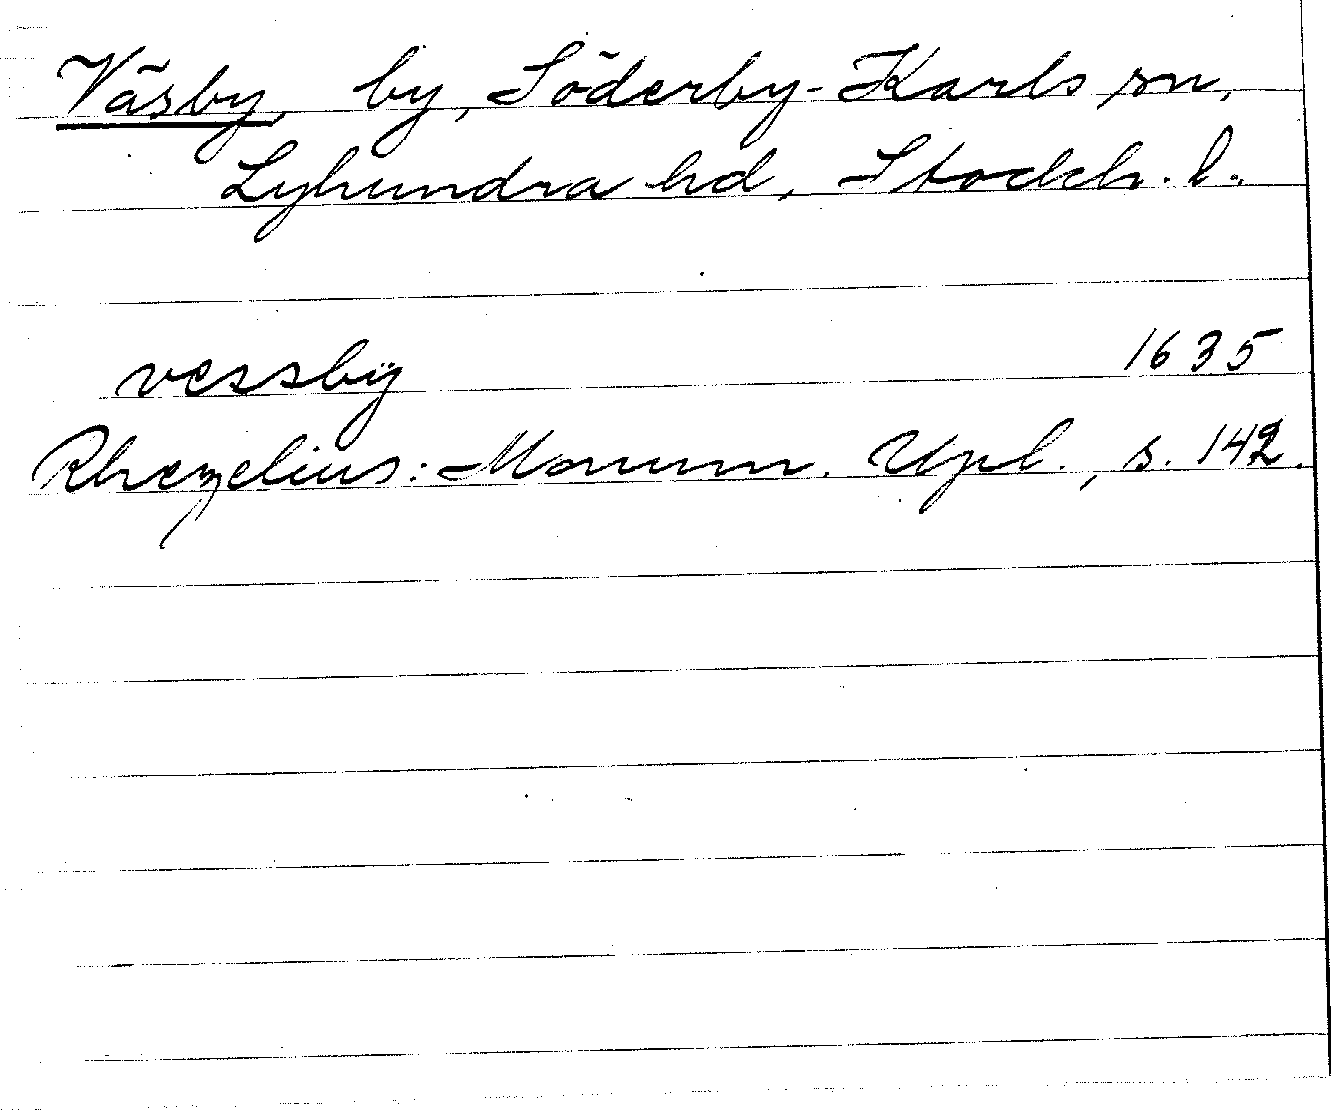 Väsby, by, Söderby-Karls sn,
Lyhundra hd, Stockh. l.
vessbÿ 1635
Rhezelius: Monum. Upl., s. 142.